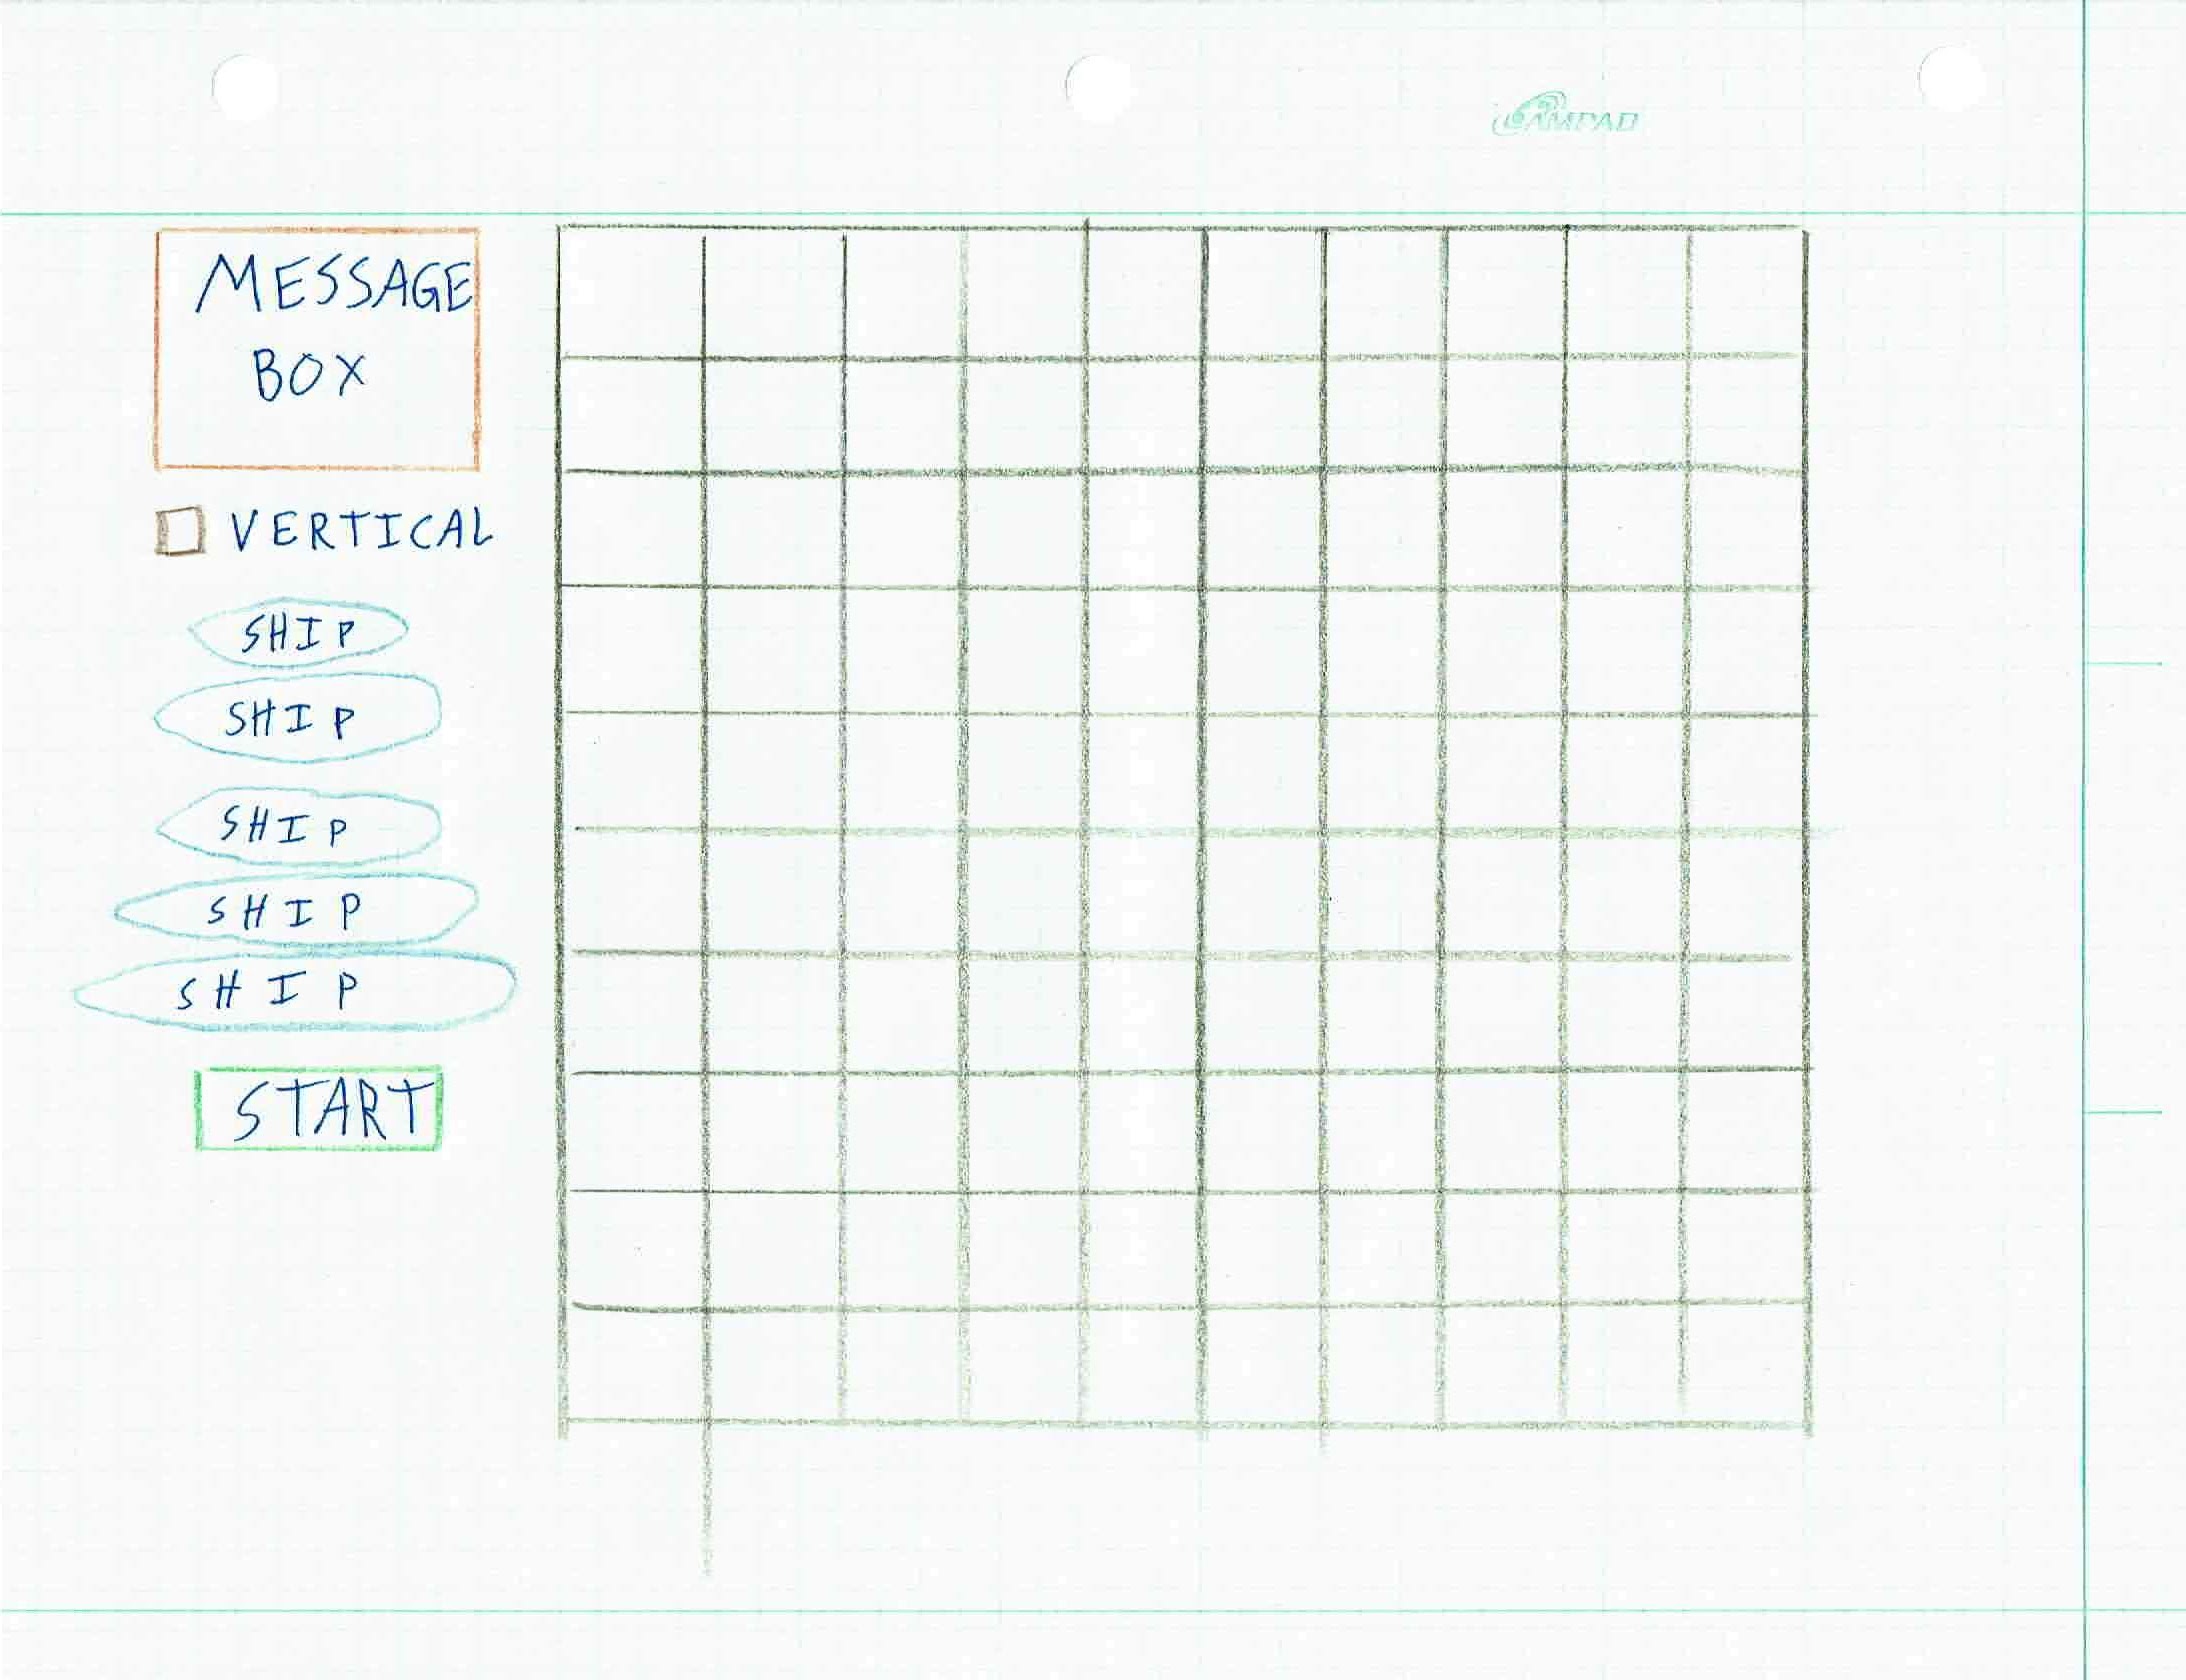 AMPAD
MESSAGE
BOX
VERTICAL
SHIP
SHIP
SHIP
SHIP
SHIP
START